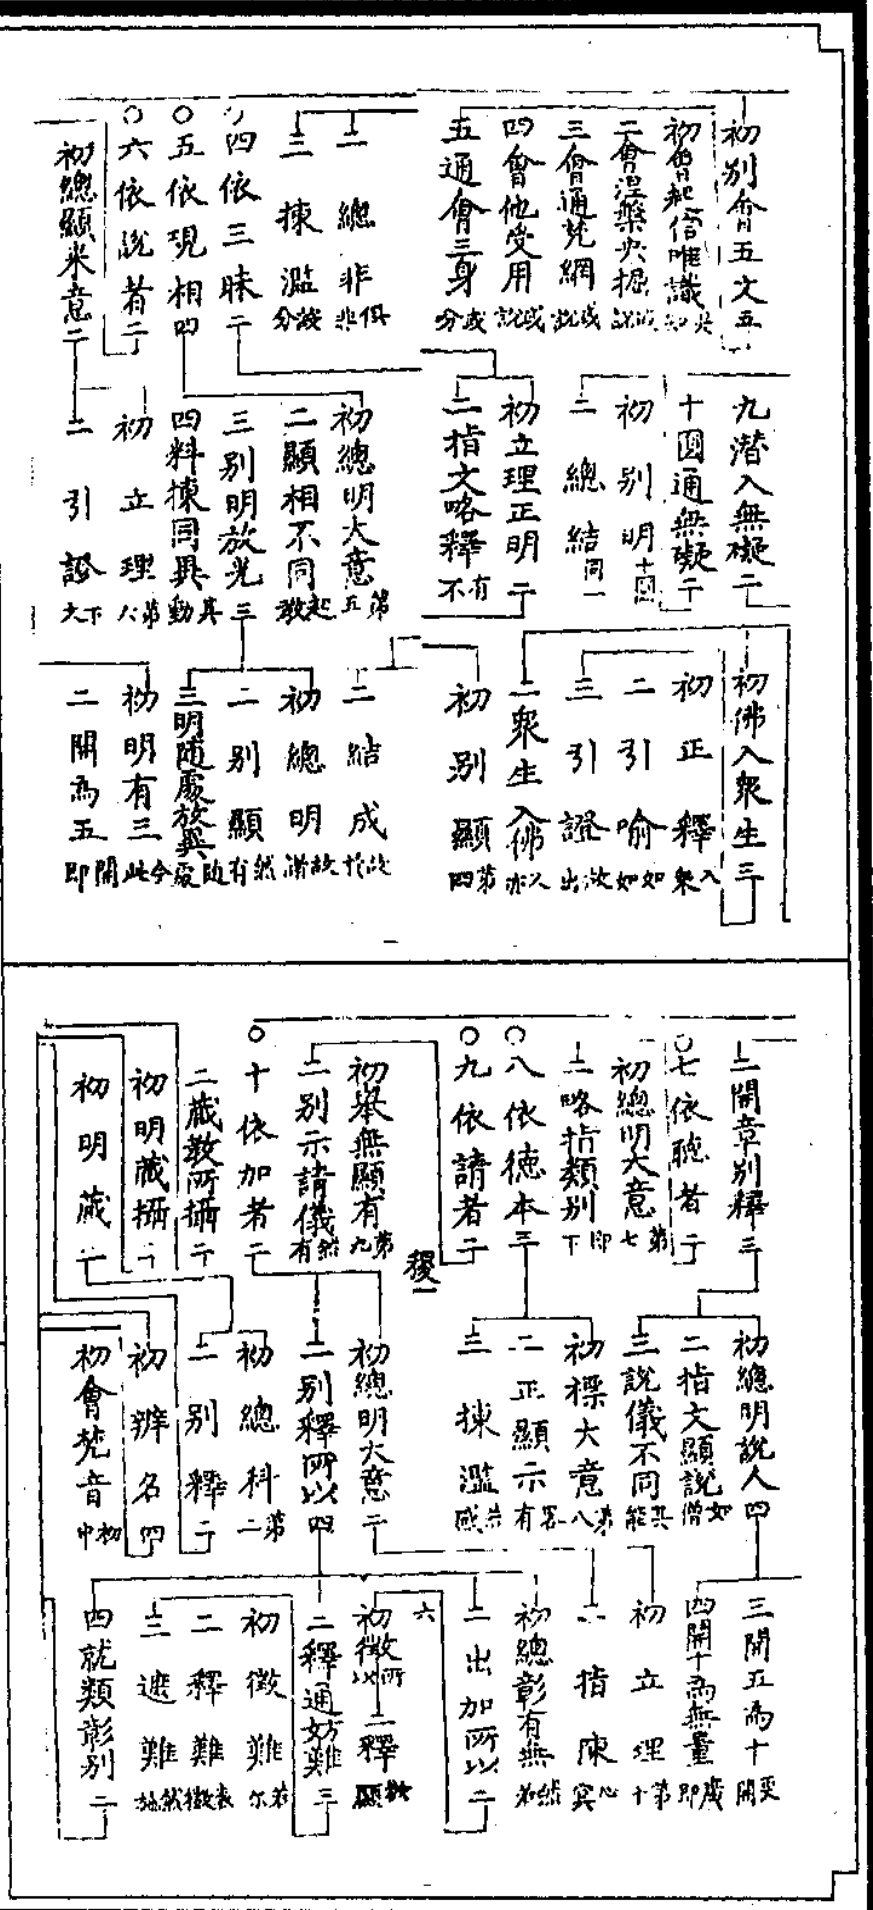 初別會五文五
初會起信唯識
二會涅槃央掘
三會通梵網說或
四會他受用說或
五通會三身分或
二總非非俱
三揀濫分
○四依三昧二
○五依現相四
○六依說者二
初總顯來意二
九潛入無礙二
十圓通無礙二
初別明十圓
二總結同一
初立理正明二
二指文略釋不有
初總明大意五第
二顯相不同教起
三別明放光三
四料揀同異動其
初立理六第
二引證大下
初佛入眾生三
初正釋眾入
二引喻如如
三引證出故
二眾生入佛亦入
初別顯四第
二結成故
初總明謂故
二別顯有然
三明隨處放異處隨
初明有三此今
二開為五即開
二開章別釋三
○七依聽者二
初總明大意七第
二略指類別下即
○八依德本三
○九依請者二
初舉無顯有九第
二別示請儀有然
○十依加者二
二藏教所攝二
初明藏攝二
初明藏二
稷一
初總明說人四
二指文顯說僧如
三說儀不同能其
初標大意八第
二正顯示有畧
三揀濫
初總明大意二
二別釋所以四
初總科二第
二別釋二
初辨名四
初會梵音中初
三開五為十開更
四開十為無量即廣
初立理十第
二指陳冥心
初總彰有無若然
二出加所以二
六
初徵以所二釋顯
二釋通妨難三
初徵難尔若
二釋難
三遮難然
四就類彰別二